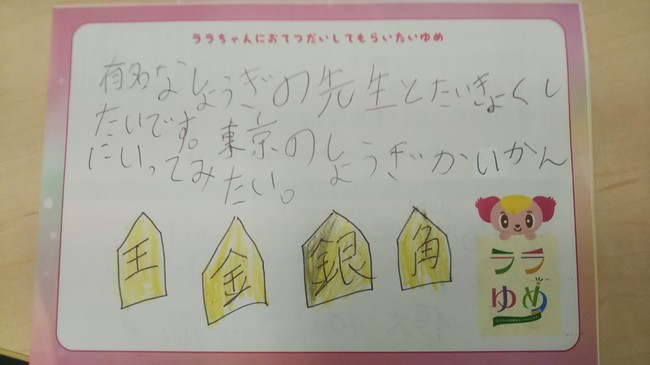 ララちゃんにおてつだいしてもらいたいゆめ
有名なしょうぎの先生とたいきょくし
たいです。東京のしょうぎかいかん
にいってみたい。
王 金 銀 角
ララ
ゆめ